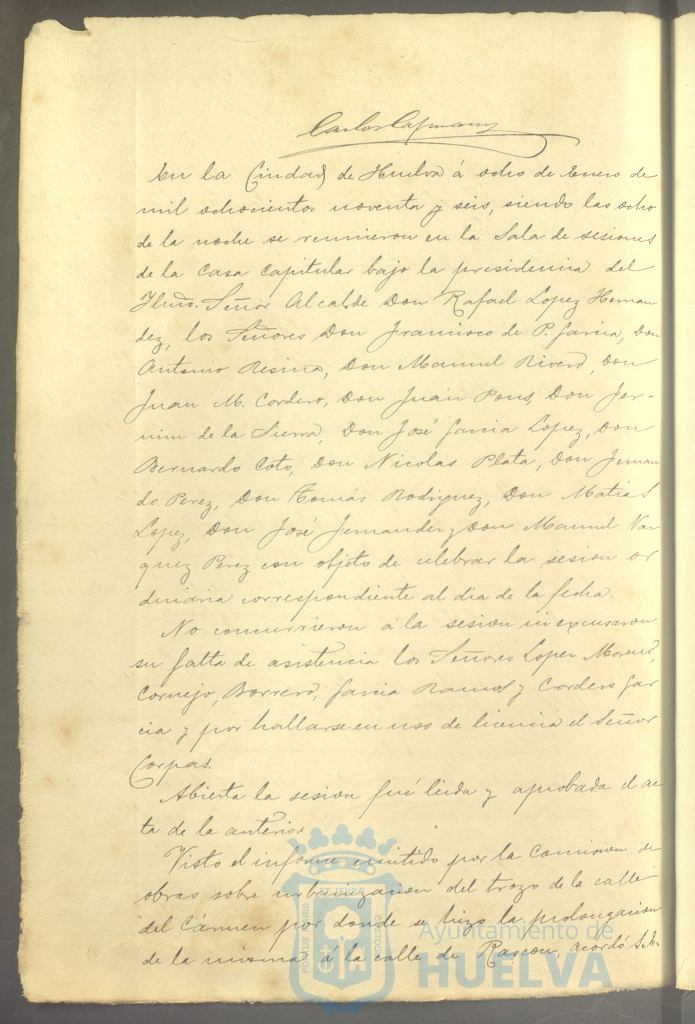 Carlos Capmany
En la Ciudad de Huelva á ocho de Enero de
mil ochocientos noventa y seis, siendo las ocho
de la noche se reunieron en la Sala de sesiones
de la Casa Capitular bajo la presidencia del
Ilmo. Señor Alcalde Don Rafael Lopez Hernan
dez, los Señores Don Francisco de P. Garcia, Don
Antonio Resino, Don Manuel Rivero, Don
Juan M. Cordero, Don Juan Pons, Don Fer-
min de la Sierra, Don José Garcia Lopez, Don
Bernardo Coto, Don Nicolas Plata, Don Fernan
do Perez, Don Tomás Rodriguez, Don Matias
Lopez, Don José Fernandez y Don Manuel Vaz
quez Perez con objeto de celebrar la sesion or
dinaria correspondiente al dia de la fecha.
No concurrieron á la sesion ni excusaron
su falta de asistencia los Señores Lopez Moreno,
Cornejo, Borrero, Garcia Ramos y Cordero Gar
cia y por hallarse en uso de licencia el Señor
Corpas.
Abierta la sesion fué leida y aprobada el ac
ta de la anterior.
Visto el informe emitido por la Comision de
obras sobre urbanizacion del trozo de la calle
del Cármen por donde se hizo la prolongacion
de la misma á la calle de Rascon, acordó
PORTUS MARIS ET TERRE CUSTODIA
Ayuntamiento de
HUELVA